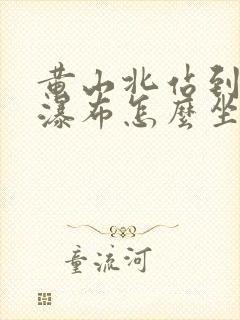 黄山北佔到
瀑布怎麼坐
童流河